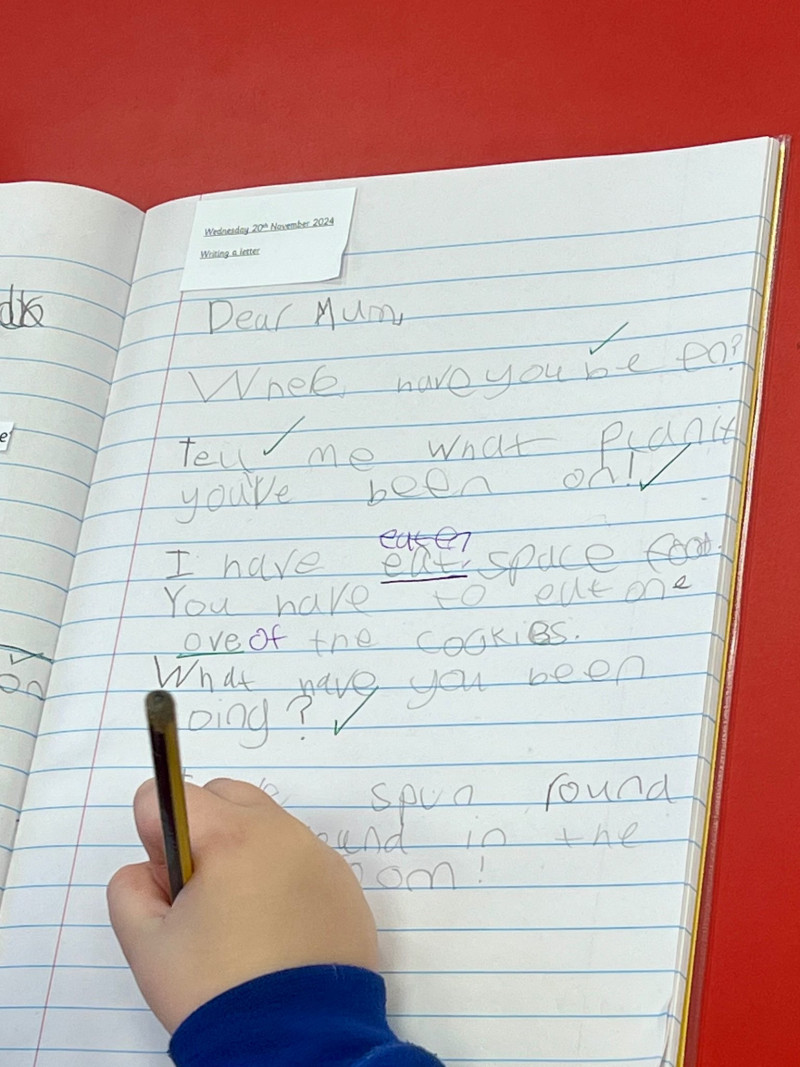 Wednesday 20th November 2024
Writing a letter
Dear Mum,
have you be en?
Tell me what planit
you've been on!
eaten
I have eat space food.
You have to eat one
ove of the cookies.
What have you been
oing?
spun round
ound in the
oom!